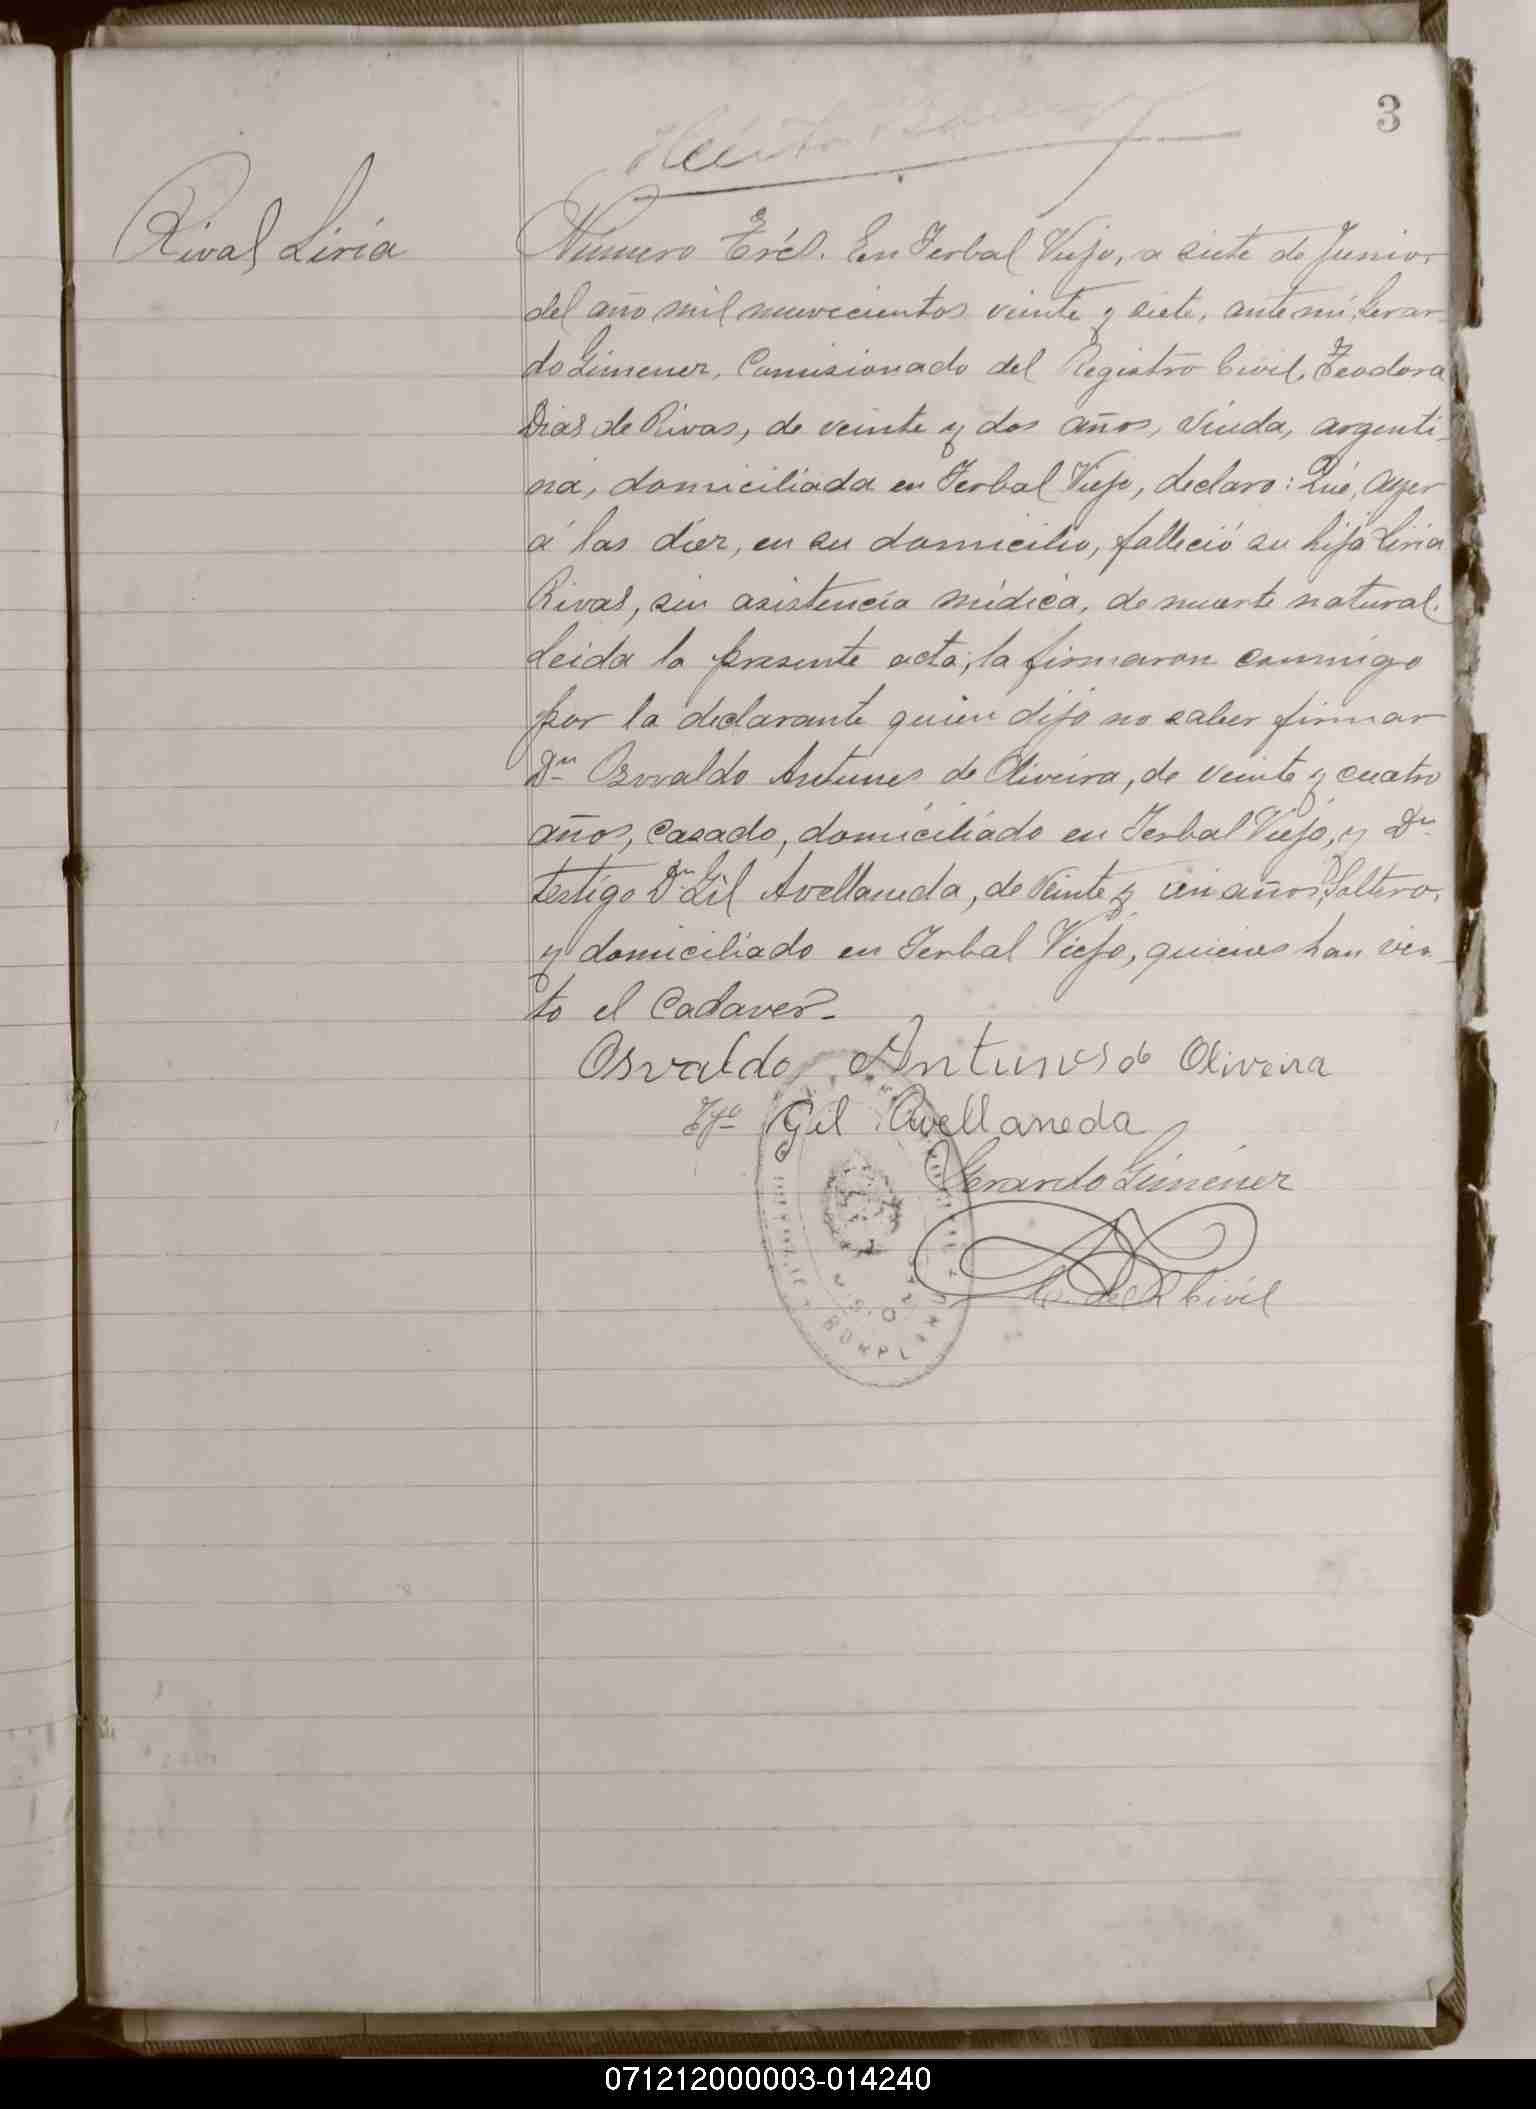 3
Rivas Liria
Número Tres. En Yerbal Viejo, a siete de Junio
del año mil novecientos veinte y siete, ante mí, Gerar-
do Gimenez, Comisionado del Registro Civil, Teodora
Dias de Rivas, de veinte y dos años, viuda, argenti-
na, domiciliada en Yerbal Viejo, declaro: Que, ayer
á las diez, en su domicilio, falleció su hija Liria
Rivas, sin asistencia médica, de muerte natural.
Leida la presente acta, la firmaron conmigo
por la declarante quien dijo no saber firmar
Dn Osvaldo Antunes de Oliveira, de veinte y cuatro
años, casado, domiciliado en Yerbal Viejo, y Dn
testigo Dn Gil Avellaneda, de veinte y un años, Soltero,
y domiciliado en Yerbal Viejo, quienes han vis-
to el cadaver.-
Osvaldo Antunes de Oliveira
Tgo Gil Avellaneda
Gerardo Gimenez
C. del R. Civil
071212000003-014240